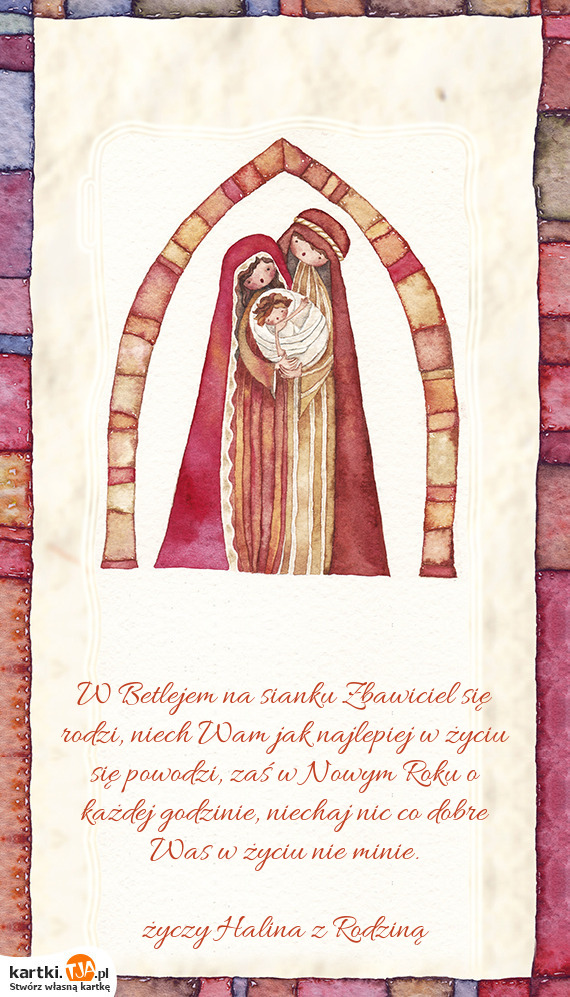 W Betlejem na sianku Zbawiciel się
rodzi, niech Wam jak najlepiej w życiu
się powodzi, zaś w Nowym Roku o
każdej godzinie, niechaj nic co dobre
Was w życiu nie minie.
życzy Halina z Rodziną
kartki.TJA.pl
Stwórz własną kartkę